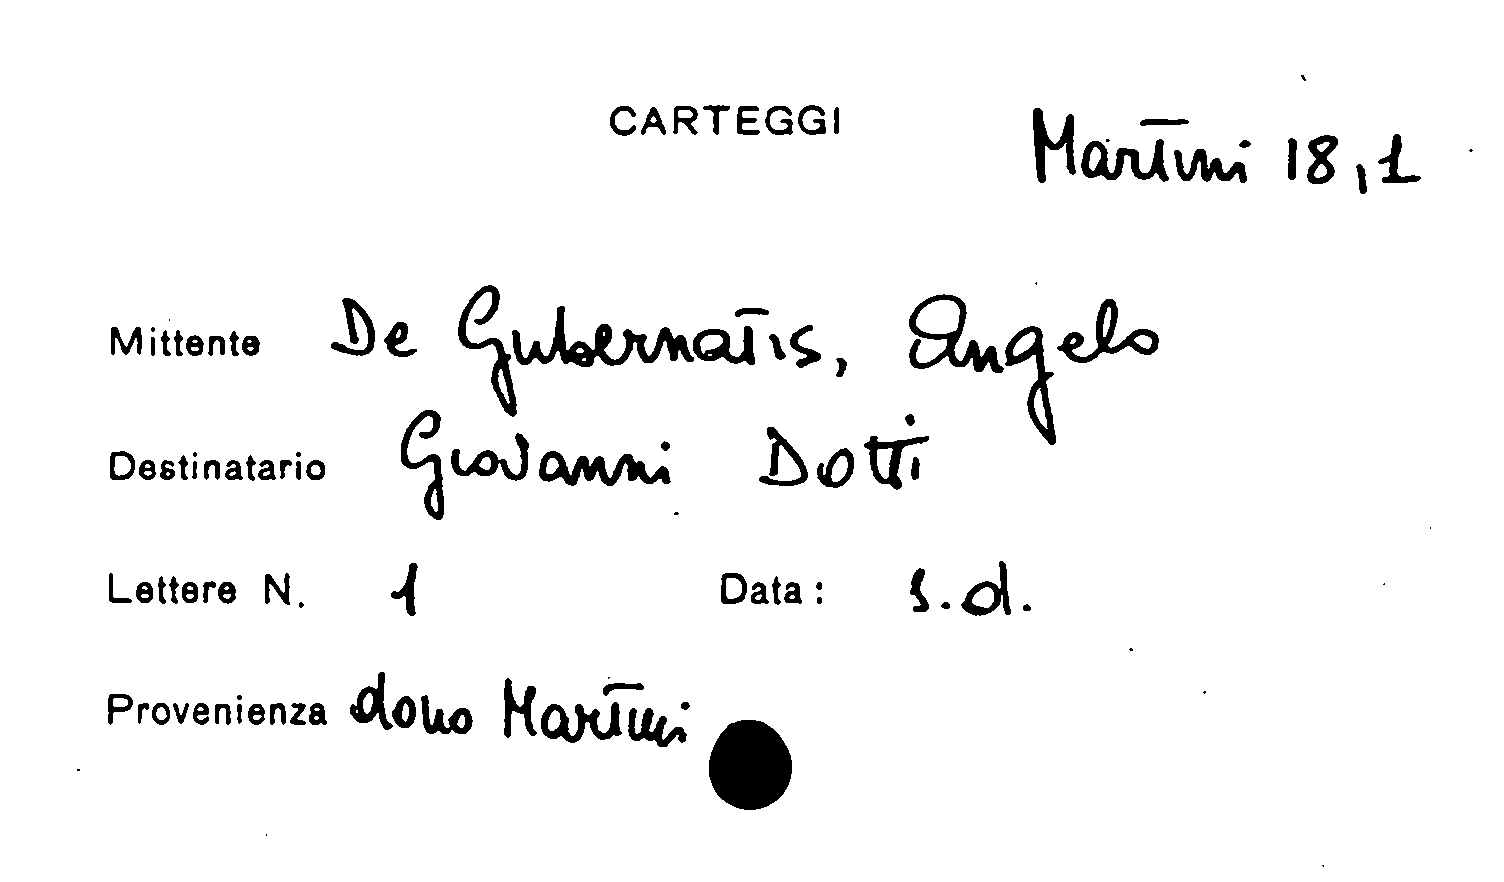 CARTEGGI Martini 18,1
Mittente De Gubernatis, Angelo
Destinatario Giovanni Dotti
Lettere N. 1 Data: s.d.
Provenienza dono Martini